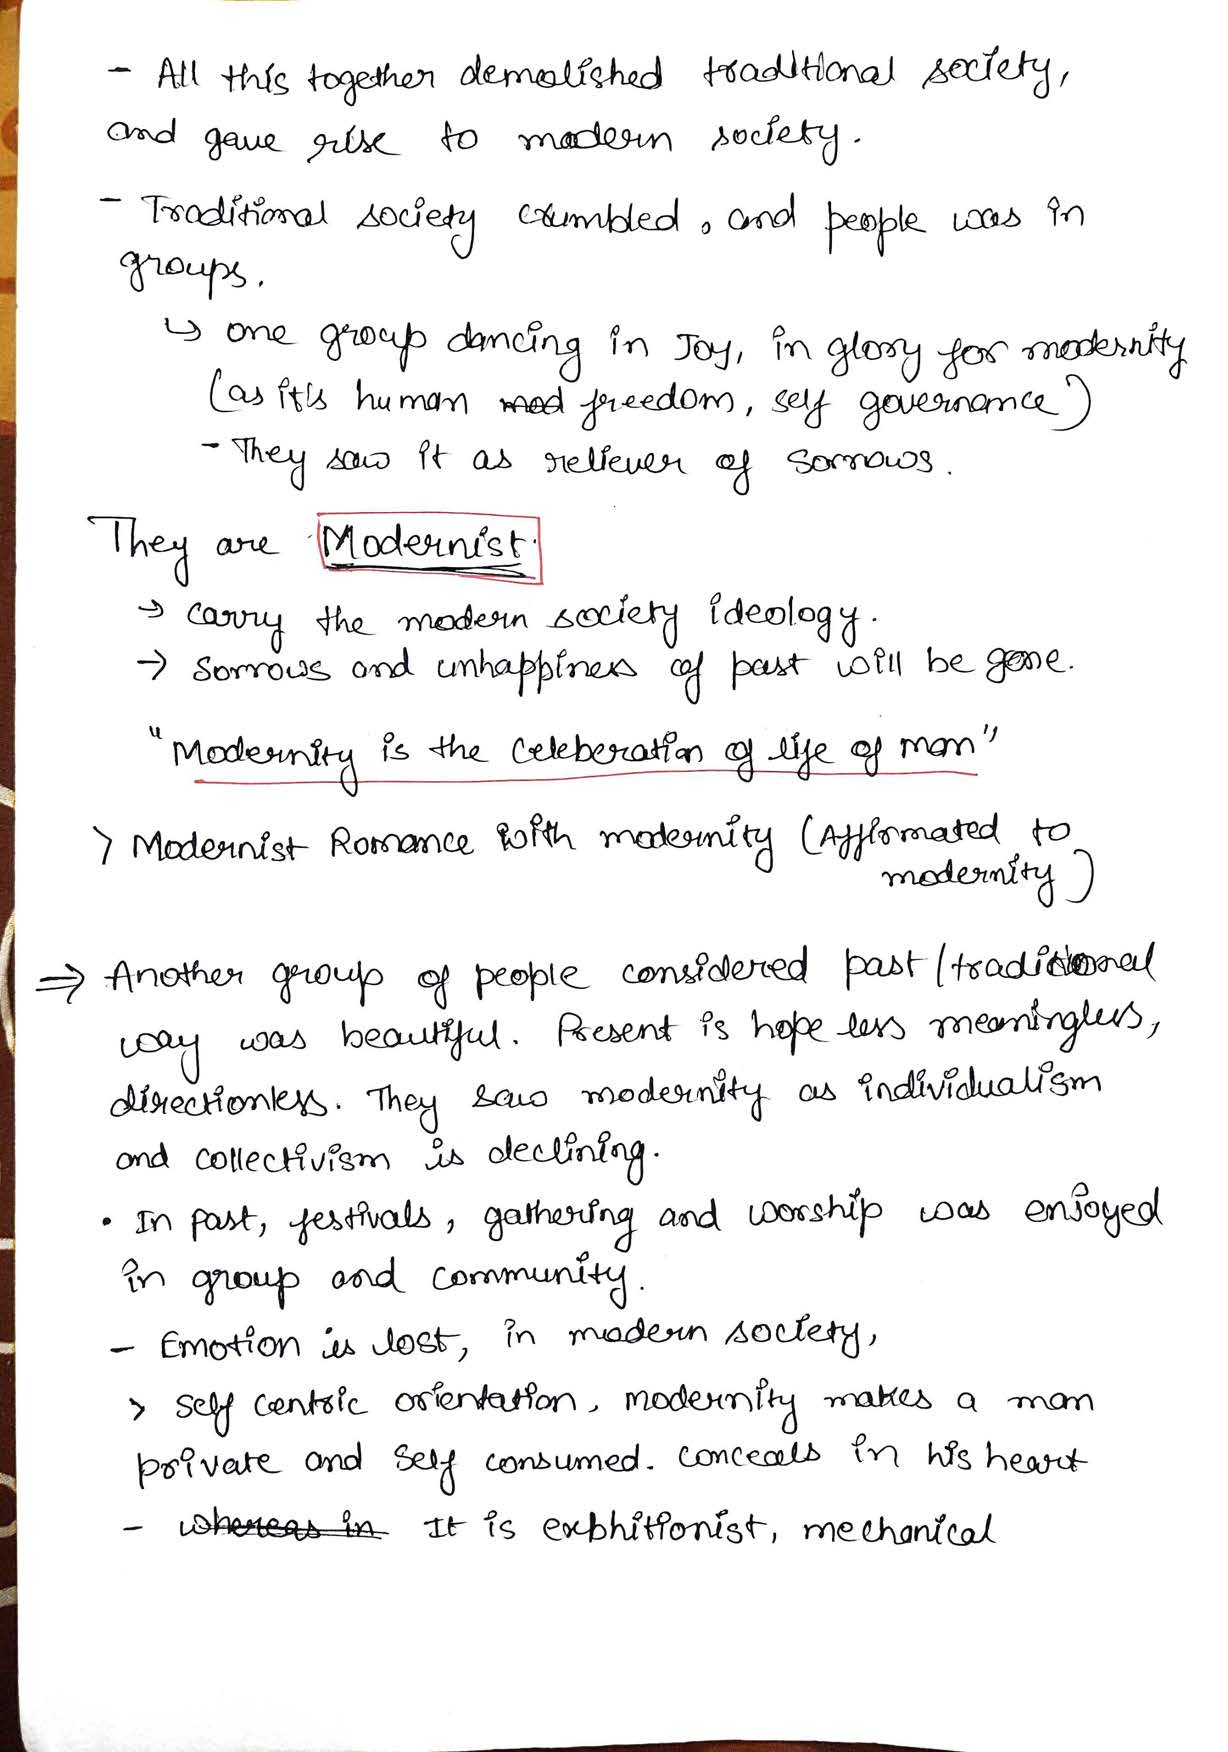 - All this together demolished traditional society,
and gave rise to modern society.
- Traditional society crumbled, and people was in
groups.
↳ one group dancing in Joy, in glory for modernity
(as it's human mod freedom, self governance)
- They saw it as reliever of sorrows.
They are Modernist.
→ carry the modern society ideology.
→ sorrows and unhappiness of past will be gone.
"Modernity is the celeberation of life of man"
> Modernist Romance with modernity (Affirmated to
modernity)
⇒ Another group of people considered past/traditional
way was beautiful. Present is hope less meaningless,
directionless. They saw modernity as individualism
and collectivism is declining.
• In past, festivals, gathering and worship was enjoyed
in group and community.
- Emotion is lost, in modern society,
> Self centric orientation, modernity makes a man
private and self consumed. conceals in his heart
- whereas in It is exbhitionist, mechanical